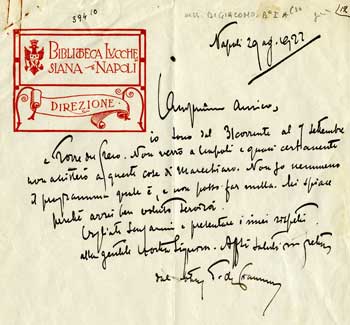 39410
BIBLIOTECA LVCCHE
SIANA - NAPOLI
DIREZIONE
Napoli 29 ag. 1922
Carissimo Amico,
io sono dal 31 corrente al 7 settembre
a Torre del Greco. Non verrò a Napoli e quasi certamente
non assisterò a queste cose di Marechiaro. Non so nemmeno
il programma quale è, e non posso far nulla. Mi spiace
perché avrei ben voluto servirvi.
Vogliate scusarmi e presentare i miei rispetti
alla gentile Vostra Signora. Aff. saluti in fretta
dal